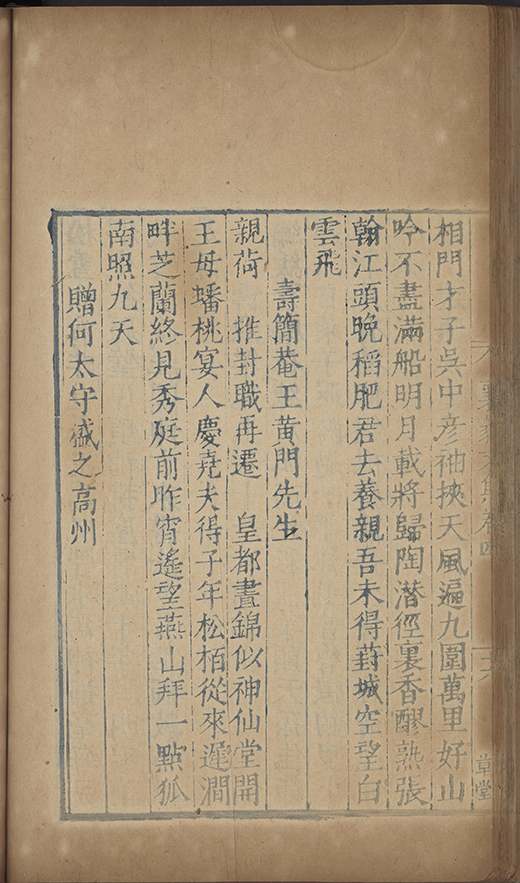 相門才子吳中彦袖挾天風遍九圍萬里好山
吟不盡滿船明月載將歸陶潛徑裏香醪熟張
翰江頭晚稻肥君去養親吾未得葑城空望白
雲飛
壽簡菴王黄門先生
親荷 推封職再遷 皇都晝錦似神仙堂開
王母蟠桃宴人慶堯夫得子年松栢從來遲澗
畔芝蘭終見秀庭前昨宵遙望燕山拜一點狐
南照九天
贈何太守盛之高州
草堂